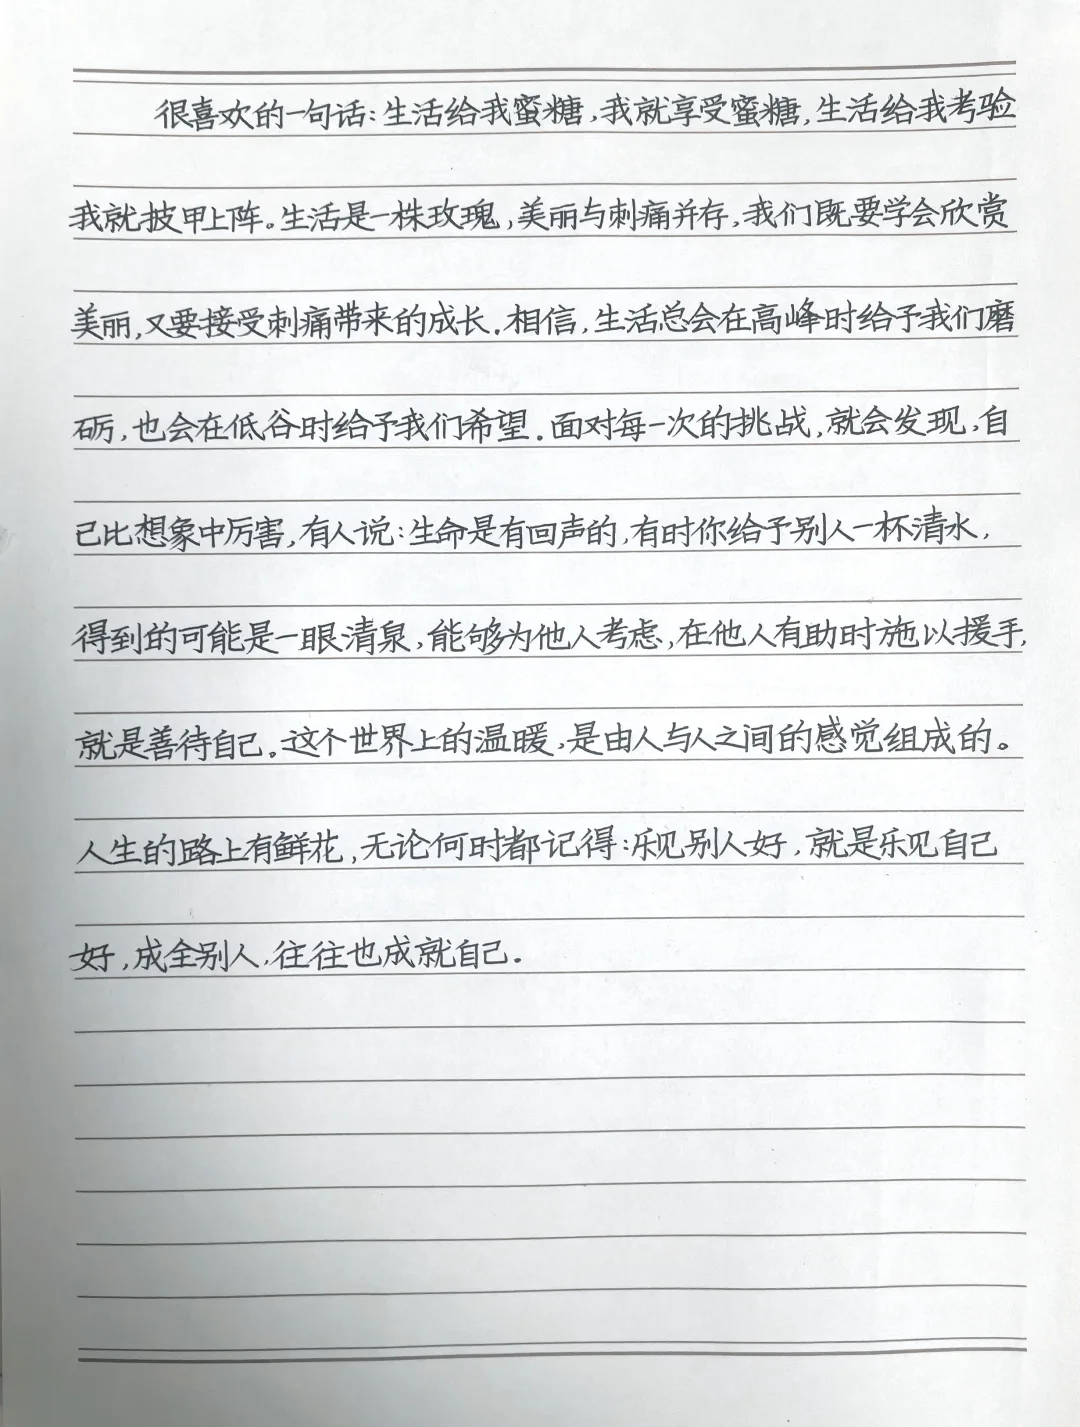 很喜欢的一句话:生活给我蜜糖,我就享受蜜糖,生活给我考验
我就披甲上阵。生活是一株玫瑰,美丽与刺痛并存,我们既要学会欣赏
美丽,又要接受刺痛带来的成长.相信,生活总会在高峰时给予我们磨
砺,也会在低谷时给予我们希望.面对每一次的挑战,就会发现,自
己比想象中厉害,有人说:生命是有回声的,有时你给予别人一杯清水,
得到的可能是一眼清泉,能够为他人考虑,在他人有助时施以援手,
就是善待自己。这个世界上的温暖,是由人与人之间的感觉组成的。
人生的路上有鲜花,无论何时都记得:乐见别人好,就是乐见自己
好,成全别人,往往也成就自己.